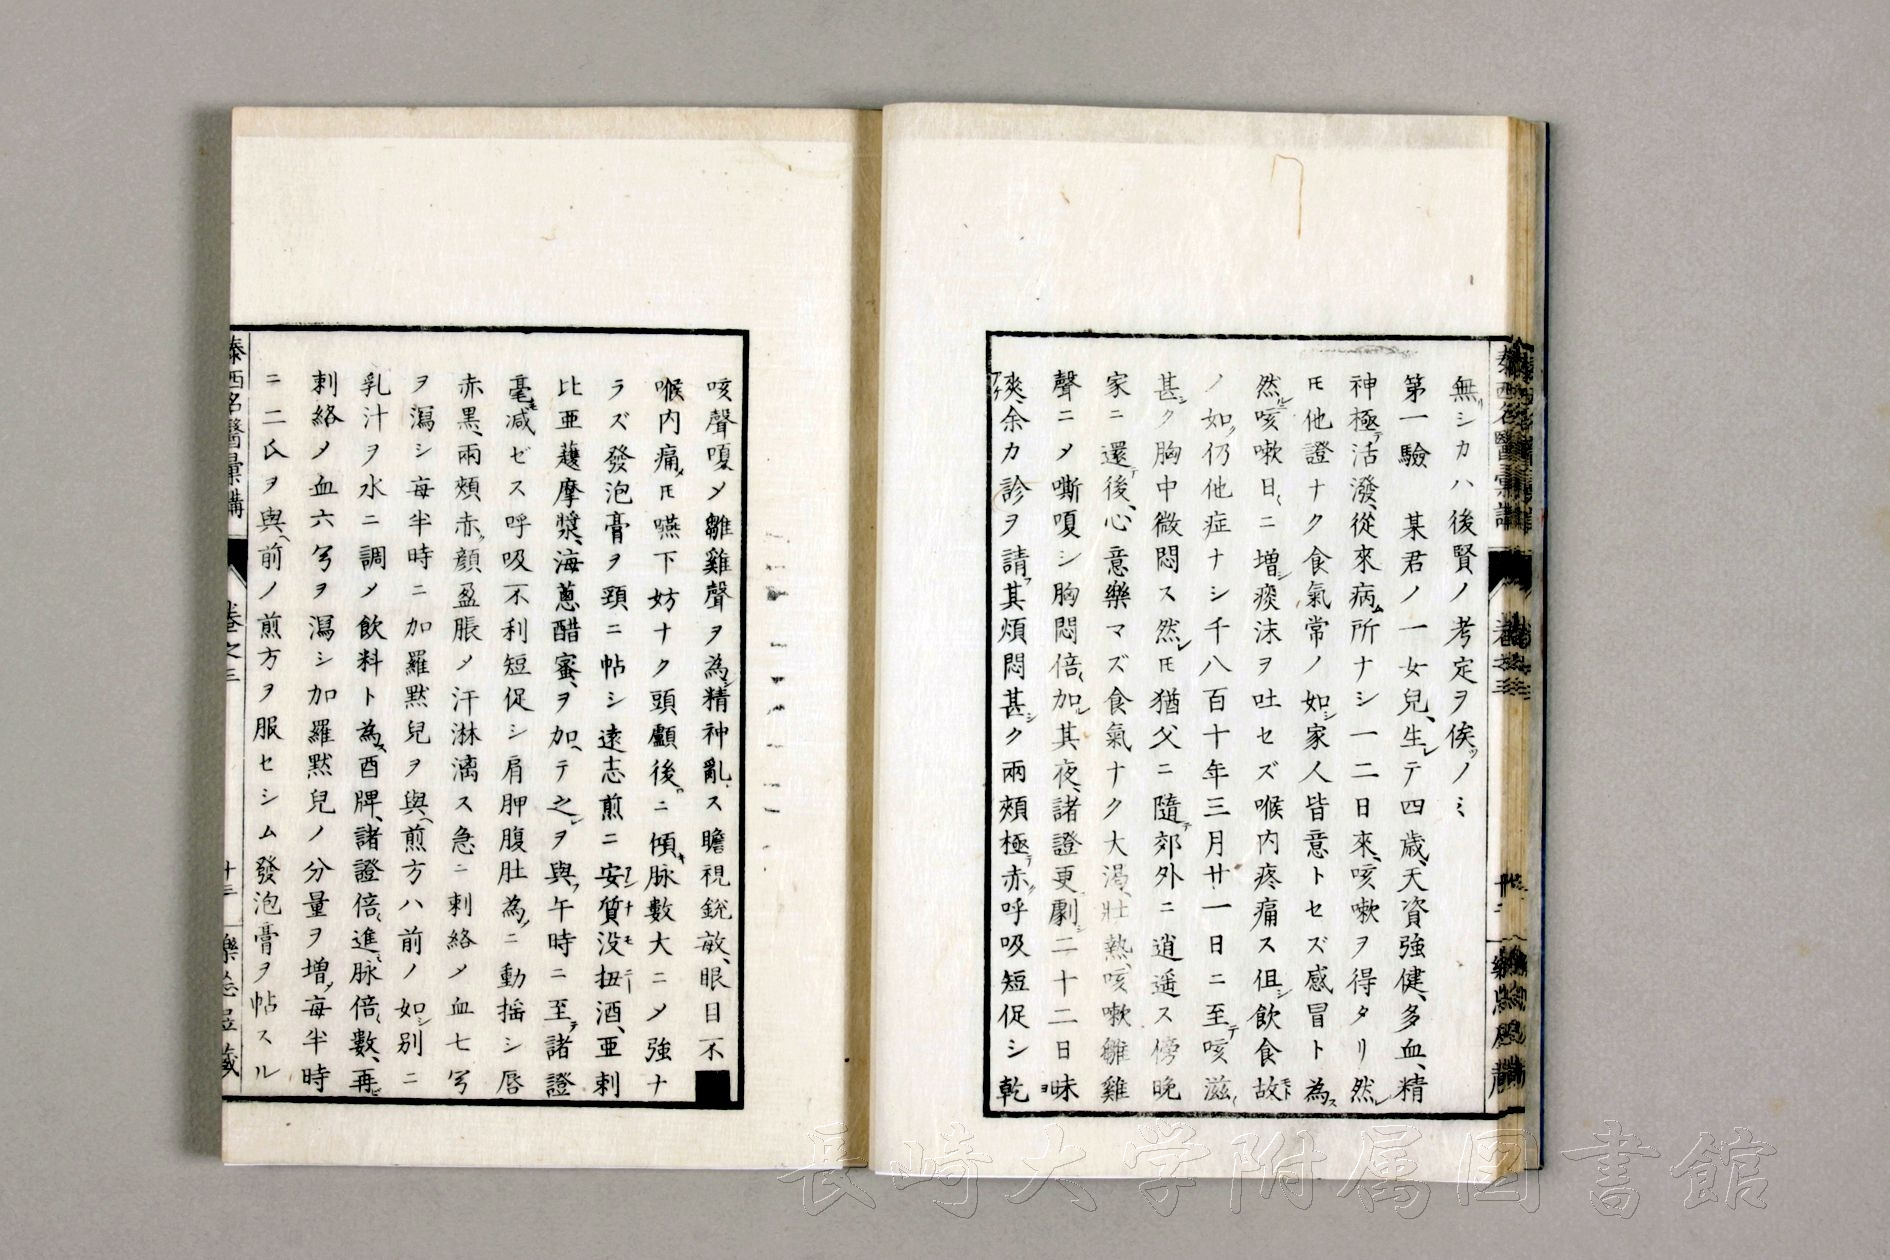 無シカハ後賢ノ考定ヲ俟ツノミ
第一驗　某君ノ一女兒、生レテ四歳、天資強健、多血、精
神極テ活潑、從來病ム所ナシ一二日來、咳嗽ヲ得タリ然レ
ㇳモ他證ナク食氣常ノ如シ家人皆意トセズ感冒ト為ス
然ルニ咳嗽日々ニ増シ痰沫ヲ吐セズ喉内疼痛ス但シ飲食故
ノ如ク仍他症ナシ千八百十年三月廿一日ニ至テ咳滋々
甚シク胸中微悶ス然レㇳモ猶父ニ隨テ郊外ニ逍遥ス傍晩
家ニ還テ後、心意樂マズ食氣ナク大渇、壯熱、咳嗽雛雞
聲ニメ嘶嗄シ胸悶倍々加ル其夜、諸證更ニ劇シ二十二日昧
爽、余カ診ヲ請フ其煩悶甚シク兩頰極テ赤ク呼吸短促シ乾
咳聲嗄メ雛雞聲ヲ為シ精神亂ス瞻視銳敏、眼目不
喉内痛メㇳモ嚥下妨ナク頭顱後ニ傾キ脉數大ニメ強ナ
ラズ發泡膏ヲ頸ニ帖シ遠志煎ニ安質没扭酒、亜刺
比亜護摩漿、海蔥醋蜜ヲ加ヘテ之ヲ與フ午時ニ至テ諸證
毫モ减ゼス呼吸不利短促シ肩胛腹肚為ニ動揺シ唇
赤黒、兩頰赤ク顔盈脹メ汗淋漓ス急ニ刺絡メ血七㕦
ヲ瀉シ毎半時ニ加羅黙兒ヲ與ヘ煎方ハ前ノ如シ別ニ
乳汁ヲ水ニ調メ飲料ト為ス酉牌、諸證倍々進ミ脉倍々數、再ビ
刺絡メ血六㕦ヲ瀉シ加羅黙兒ノ分量ヲ増シ毎半時
ニ二氏ヲ與ヘ前ノ煎方ヲ服セシム發泡膏ヲ帖スル
泰西名醫彙講
卷之三
十三
長崎大学附属図書館